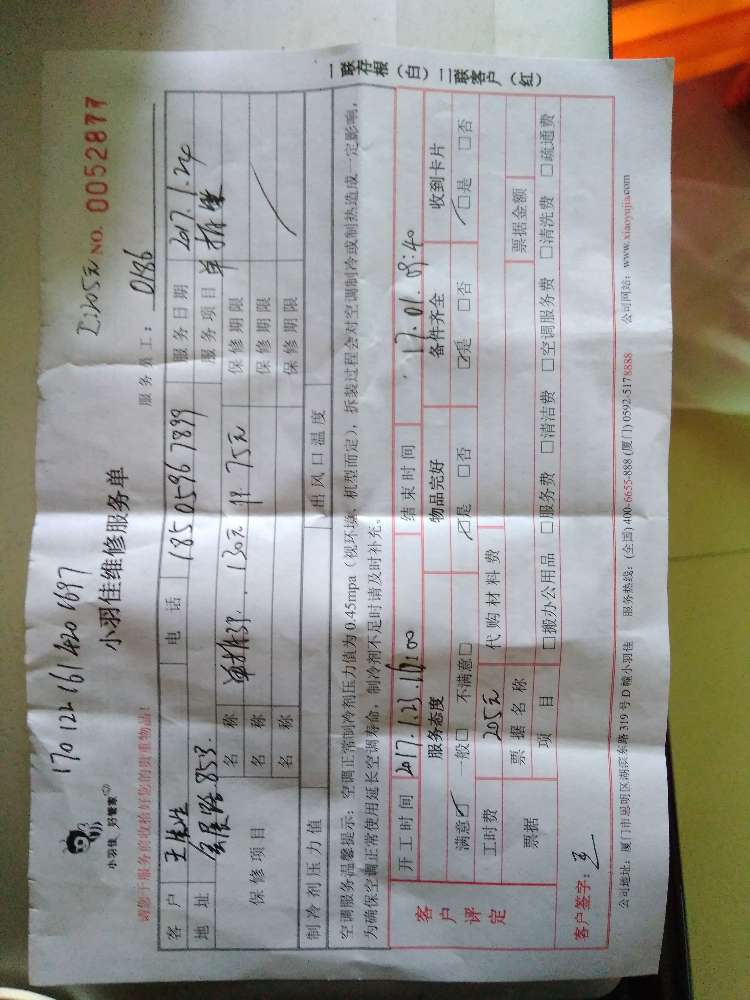 170122161420 1697
小羽佳 好管家
小羽佳维修服务单
NO. 0052877
请您于服务前收拾好您的贵重物品!
服务员工: 0186
客户 王先生 电话 18505967899 服务日期 2017.1.24
地址 853. 服务项目 单拆装
保修项目 名称 130元 75元 保修期限
名称 保修期限
名称 保修期限
制冷剂压力值 出风口温度
空调服务温馨提示:空调正常制冷剂压力值为0.45mpa(视环境、机型而定),拆装过程会对空调制冷或制热造成一定影响,
为确保空调正常使用延长空调寿命,制冷剂不足时请及时补充。
客户评定 开工时间 2017.1.23. 结束时间 17.01. 09:40
服务态度 物品完好 备件齐全 收到卡片
满意☑ 一般□ 不满意□ ☑是 □否 ☑是 □否 ☑是 □否
工时费 205元 代购材料费
票据 票据名称 票据金额
项目 □搬办公用品 □服务费 □清洁费 □空调服务费 □清洗费 □疏通费
客户签字: 王
公司地址:厦门市思明区湖滨东路319号D幢小羽佳 服务热线:(全国)400-6655-888 (厦门)0592-5178888 公司网站:www.xiaoyujia.com
一联存根(白)二联客户(红)